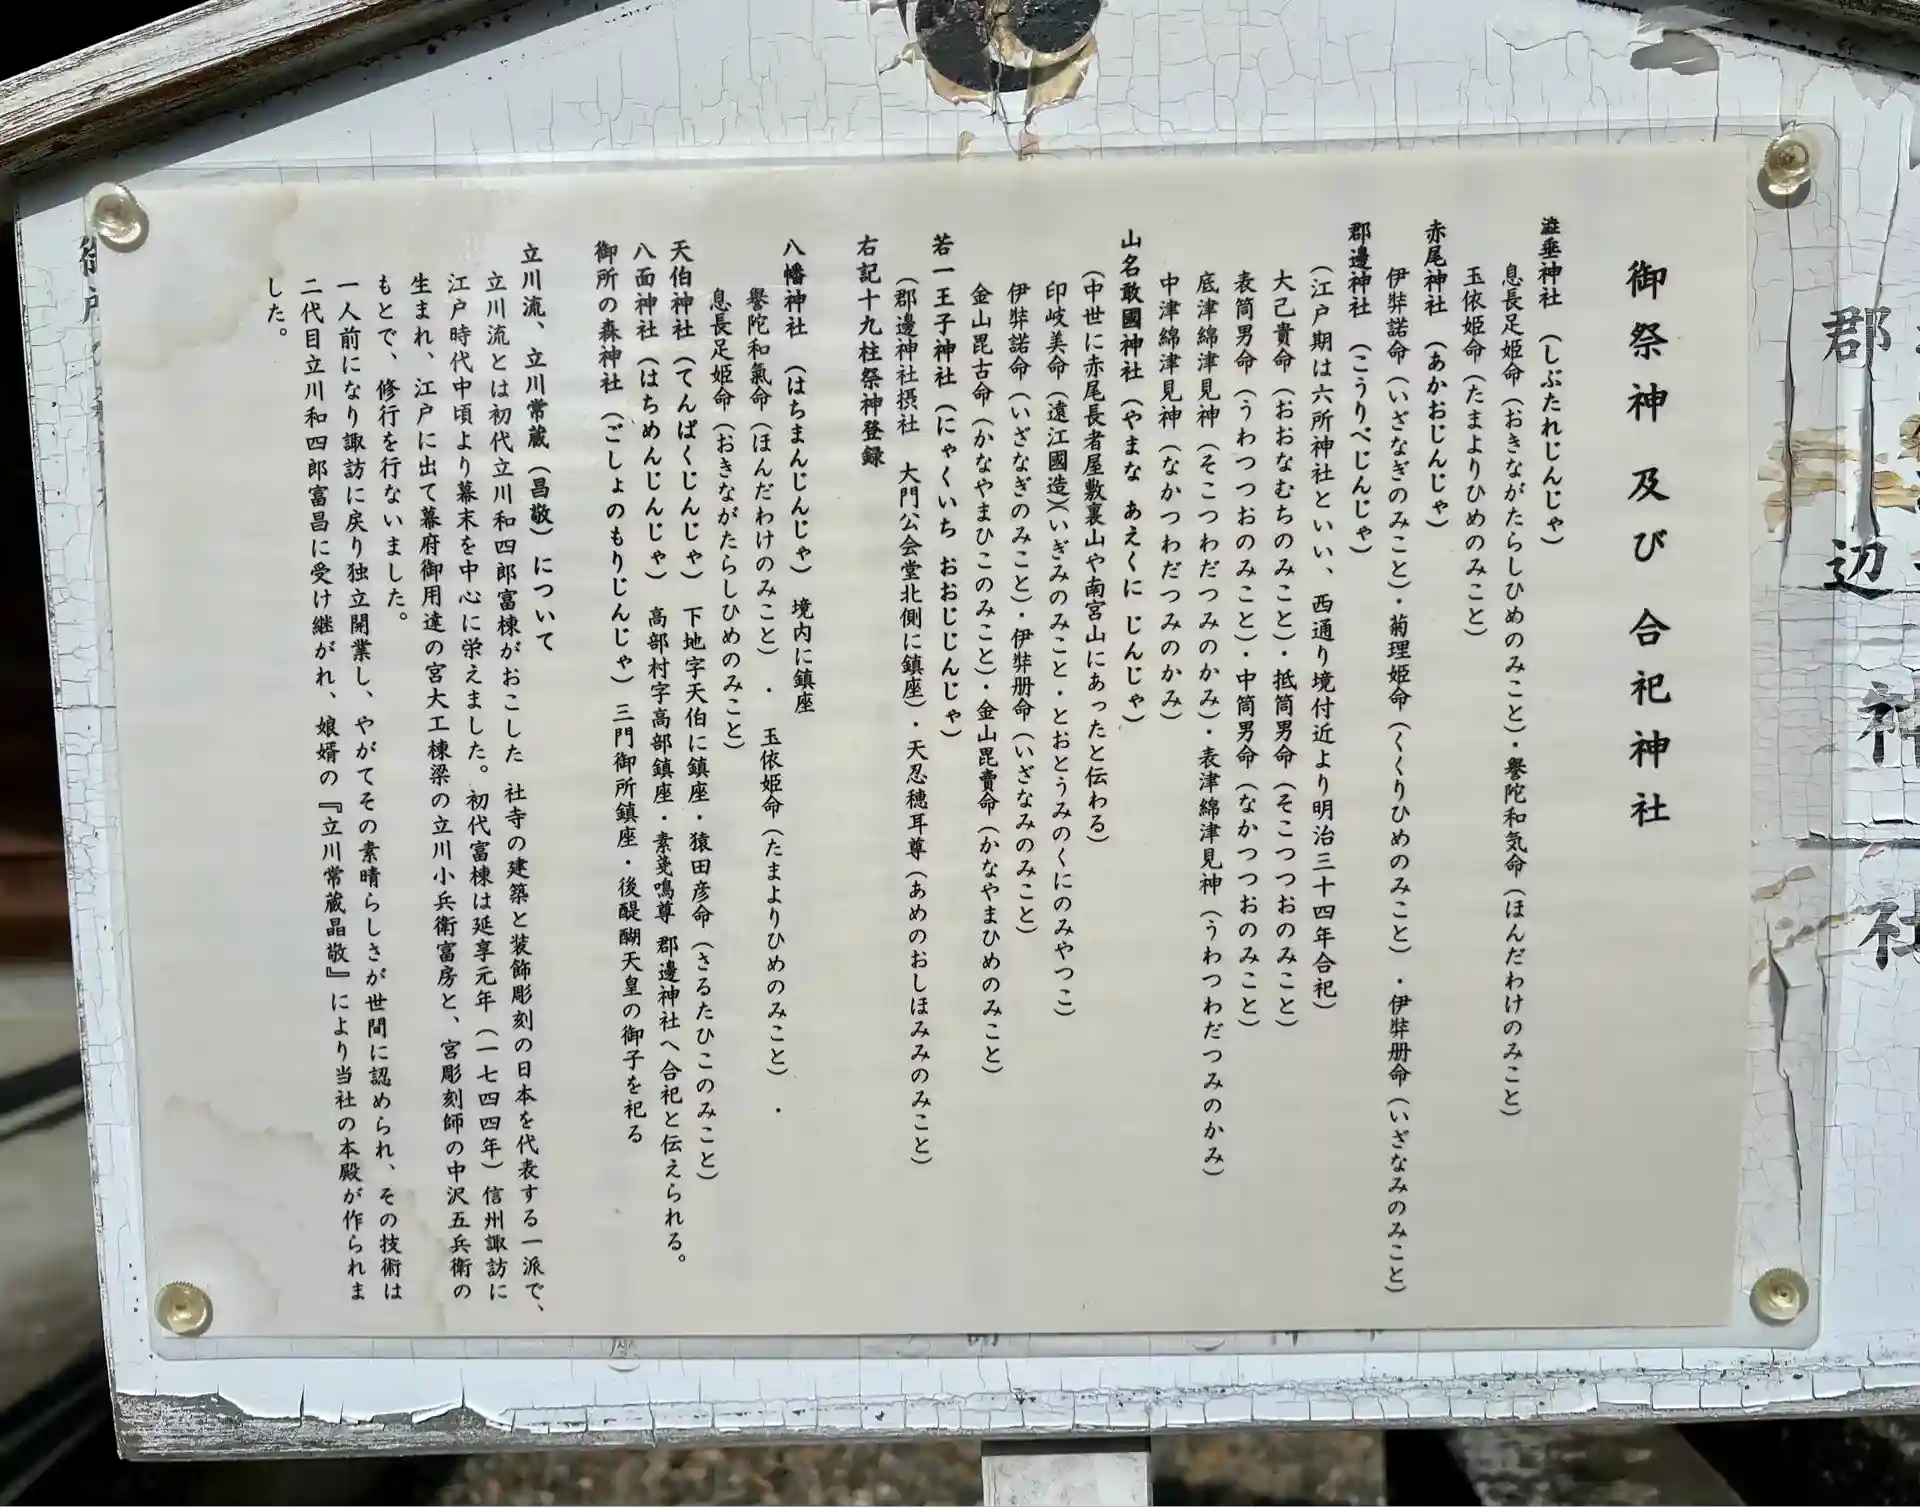 御祭神 及び 合祀神社
澁垂神社 (しぶたれじんじゃ)
息長足姫命(おきながたらしひめのみこと)・譽陀和気命(ほんだわけのみこと)
玉依姫命(たまよりひめのみこと)
赤尾神社 (あかおじんじゃ)
伊弉諾命(いざなぎのみこと)・菊理姫命(くくりひめのみこと) ・伊弉册命(いざなみのみこと)
郡邊神社 (こうりべじんじゃ)
(江戸期は六所神社といい、西通り境付近より明治三十四年合祀)
大己貴命(おおなむちのみこと)・抵筒男命(そこつつおのみこと)
表筒男命(うわつつおのみこと)・中筒男命(なかつつおのみこと)
底津綿津見神(そこつわだつみのかみ)・表津綿津見神(うわつわだつみのかみ)
中津綿津見神(なかつわだつみのかみ)
山名敢國神社(やまな あえくに じんじゃ)
(中世に赤尾長者屋敷裏山や南宮山にあったと伝わる)
印岐美命(遠江國造)(いぎみのみこと・とおとうみのくにのみやつこ)
伊弉諾命(いざなぎのみこと)・伊弉册命(いざなみのみこと)
金山毘古命(かなやまひこのみこと)・金山毘賣命(かなやまひめのみこと)
若一王子神社(にゃくいち おおじじんじゃ)
(郡邊神社摂社 大門公会堂北側に鎮座)・天忍穂耳尊(あめのおしほみみのみこと)
右記十九柱祭神登録
八幡神社 (はちまんじんじゃ) 境内に鎮座
譽陀和氣命(ほんだわけのみこと) ・ 玉依姫命(たまよりひめのみこと) ・
息長足姫命(おきながたらしひめのみこと)
天伯神社(てんぱくじんじゃ) 下地字天伯に鎮座・猿田彦命(さるたひこのみこと)
八面神社(はちめんじんじゃ) 高部村字高部鎮座・素戔鳴尊 郡邊神社へ合祀と伝えられる。
御所の森神社(ごしょのもりじんじゃ) 三門御所鎮座・後醍醐天皇の御子を祀る
立川流、立川常蔵(昌敬)について
立川流とは初代立川和四郎富棟がおこした 社寺の建築と装飾彫刻の日本を代表する一派で、
江戸時代中頃より幕末を中心に栄えました。初代富棟は延享元年(一七四四年)信州諏訪に
生まれ、江戸に出て幕府御用達の宮大工棟梁の立川小兵衛富房と、宮彫刻師の中沢五兵衛の
もとで、修行を行ないました。
一人前になり諏訪に戻り独立開業し、やがてその素晴らしさが世間に認められ、その技術は
二代目立川和四郎富昌に受け継がれ、娘婿の『立川常蔵昌敬』により当社の本殿が作られま
した。
郡辺神社